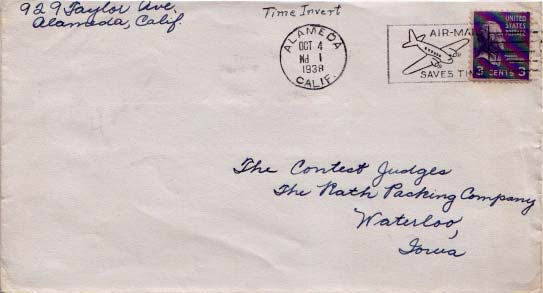 929 Taylor Ave.
Alameda, Calif.
Time Invert
ALAMEDA
OCT 4
1
1938
CALIF.
AIR-MAIL
SAVES TIME
UNITED
STATES
POSTAGE
3 CENTS 3
The Contest Judges
The Rath Packing Company
Waterloo,
Iowa